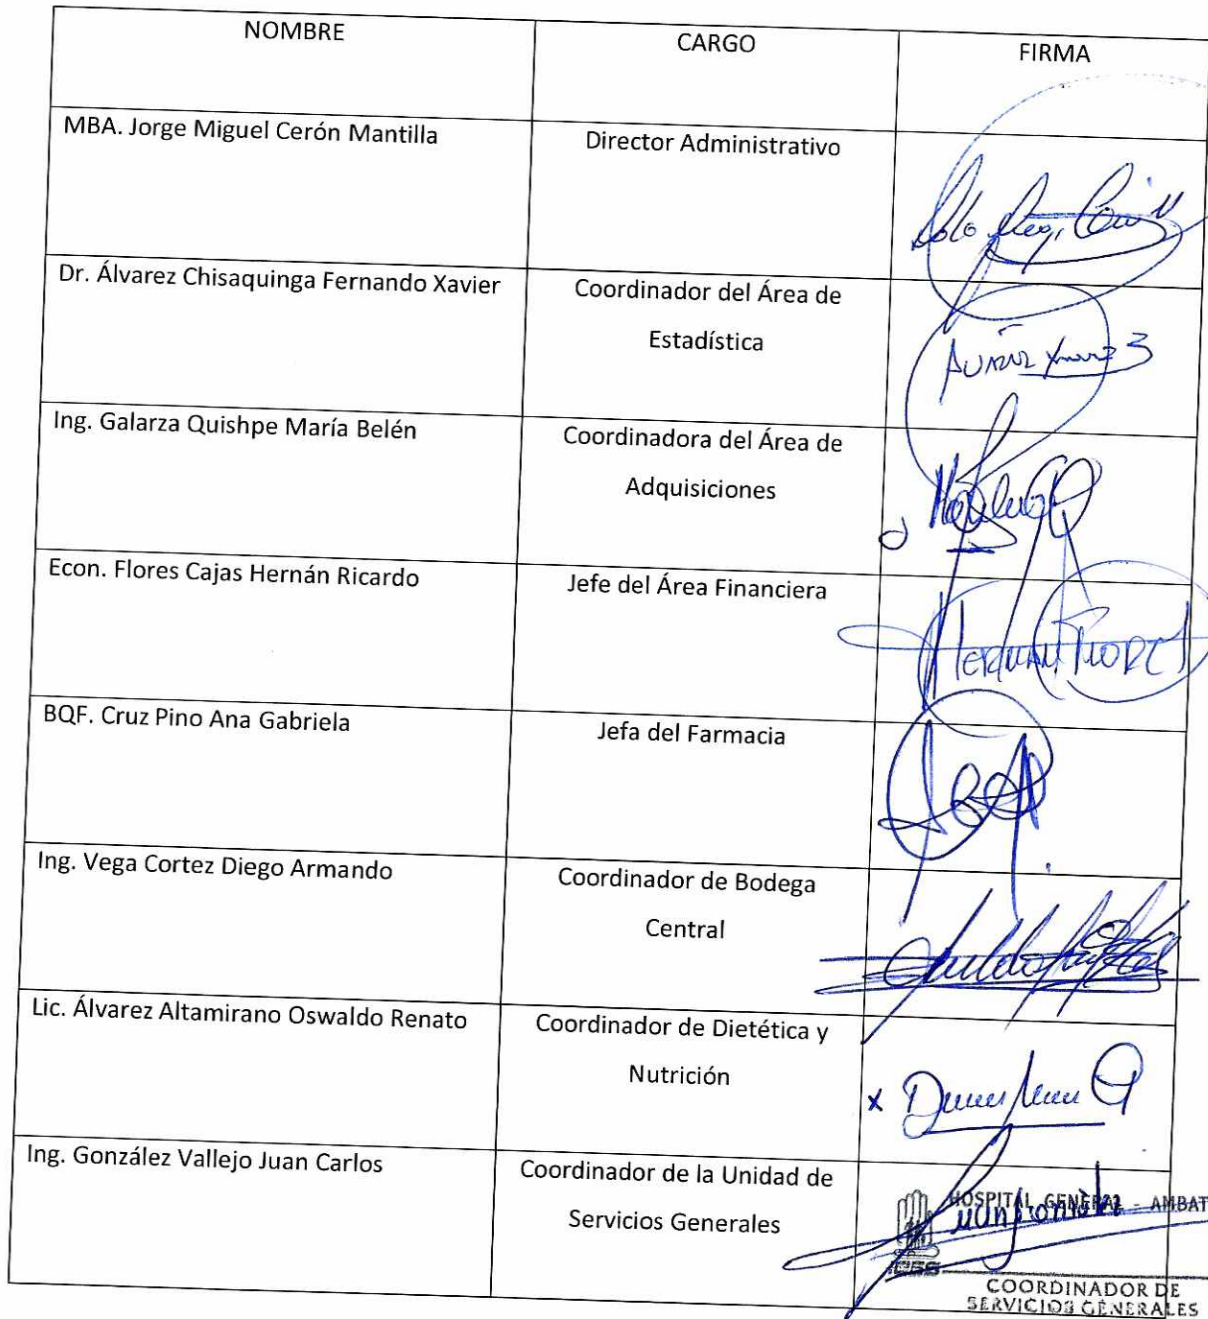 NOMBRE CARGO FIRMA
MBA. Jorge Miguel Cerón Mantilla Director Administrativo
Dr. Álvarez Chisaquinga Fernando Xavier Coordinador del Área de
Estadística
Ing. Galarza Quishpe María Belén Coordinadora del Área de
Adquisiciones
Econ. Flores Cajas Hernán Ricardo Jefe del Área Financiera
HERNAN FLORES
BQF. Cruz Pino Ana Gabriela Jefa del Farmacia
Ing. Vega Cortez Diego Armando Coordinador de Bodega
Central
Lic. Álvarez Altamirano Oswaldo Renato Coordinador de Dietética y
Nutrición
x
Ing. González Vallejo Juan Carlos Coordinador de la Unidad de
Servicios Generales
HOSPITAL GENERAL - AMBAT
IESS
COORDINADOR DE
SERVICIOS GENERALES